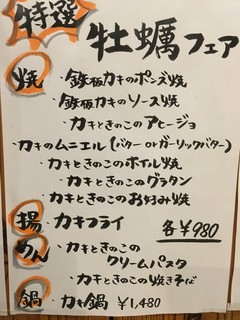 特選
牡蠣フェア
焼 ・鉄板カキのポンズ焼
・鉄板カキのソース焼
・カキときのこのアヒージョ
・カキのムニエル(バターorガーリックバター)
・カキときのこのホイル焼
・カキときのこのグラタン
・カキときのこのお好み焼
揚 ・カキフライ 各¥980
めん ・カキときのこの
クリームパスタ
・カキときのこの焼きそば
鍋 ・カキ鍋 ¥1,480